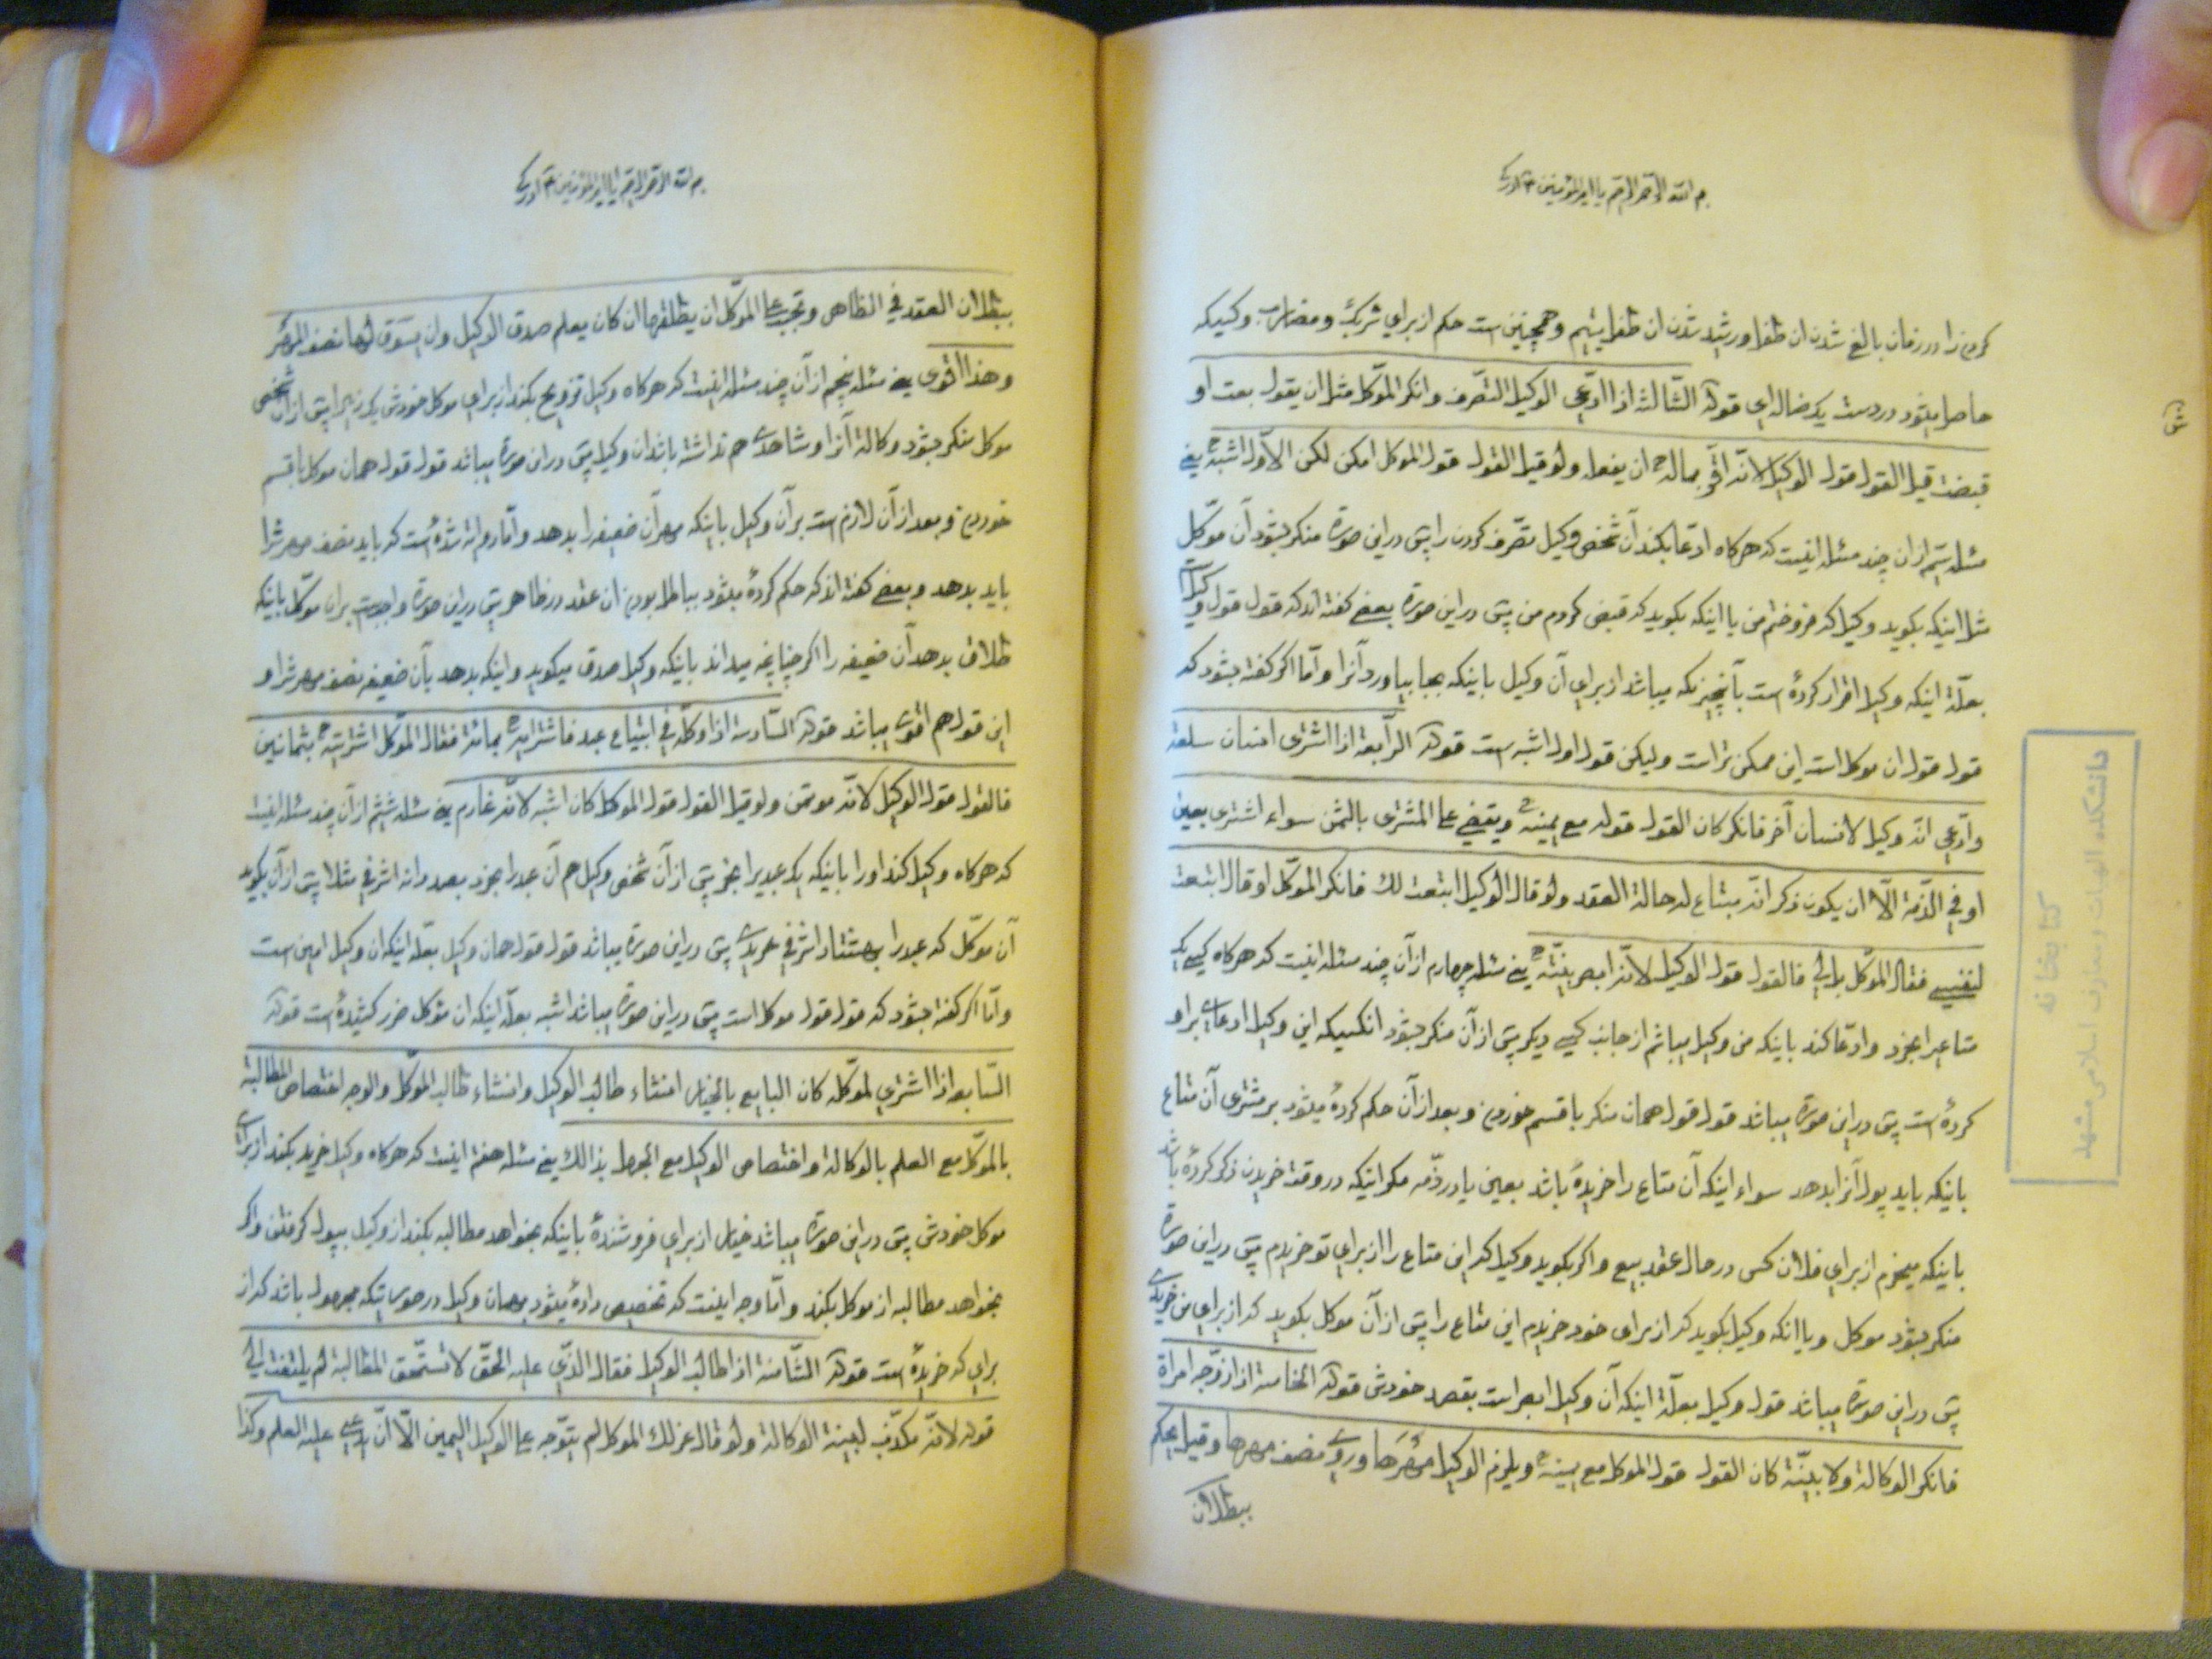 بسم الله الرحمن الرحیم یا امیرالمؤمنین ادرکنی
کردن را در زمان بالغ شدن ان طفل و رشید شدن ان طفل یتیم و همچنین است حکم از برای شریک و مضارب و کسیکه
حاصل بشود در دست یک ضاله ای قوله الثالثه اذا ادعی الوکیل التصرف و انکر الموکل مثل ان یقول بعت او
قبضت قیل القول قول الوکیل لانه اقر بماله ان یفعله ولو قیل القول قول الموکل امکن لکن الاول اشبه یعنی
مسئله سیم از ان چند مسئله اینست که هرکاه ادعا بکند آن شخص وکیل تصرف کردن را پس در این صورة منکر بشود آن موکل
مثل اینکه بکوید وکیل که فروختم من یا اینکه بکوید که قبض کردم من پس در این صورة بعضی کفته اند که قول قول وکیل است
بعلة اینکه وکیل اقرار کرده است بآنچیزیکه میباشد از برای آن وکیل باینکه بجا بیاورد آنرا و اما اکر کفته بشود که
قول قول ان موکل است این ممکن تر است ولیکن قول اول اشبه است قوله الرابعة اذا اشتری انسان سلعة
وادعی انه وکیل لانسان آخر فانکر کان القول قوله مع یمینه و یقضی علی المشتری بالثمن سواء اشتری بعین
او فی الذمة الا ان یکون ذکر انه یبتاع له حالة العقد ولو قال الوکیل ابتعت لک فانکر الموکل او قال ابتعت
لنفسی فقال الموکل بل لی فالقول قول الوکیل لانه ابصر بنیته یعنی مسئله چهارم از آن چند مسئله اینست که هرکاه کسی یک
متاعیرا بخرد و ادعا کند باینکه من وکیل میباشم از جانب کسی دیکر پس از آن منکر بشود انکسیکه این وکیل ادعای براو
کرده است پس در این صورة میباشد قول قول همان منکر با قسم خوردن و بعد از آن حکم کرده میشود بر مشتری آن متاع
باینکه باید پول آنرا بدهد سواء اینکه آن متاع را خریده باشد بعین یا در ذمه مکر اینکه در وقت خریدن ذکر کرده باشد
باینکه میخرم از برای فلان کس در حال عقد بیع و اکر بکوید وکیل که این متاع را از برای تو خریدم پس در این صورة
منکر بشود موکل و یا انکه وکیل بکوید که از برای خود خریدم این متاع را پس از آن موکل بکوید که از برای من خریدی
پس در این صورة میباشد قول وکیل بعلة اینکه آن وکیل ابصر است بقصد خودش قوله الخامسة اذا زوجه امراة
فانکر الوکالة ولا بینة کان القول قول الموکل مع یمینه و یلزم الوکیل مهرها و روی نصف مهرها و قیل یحکم
ببطلان
دانشکده الهیات و معارف اسلامی مشهد
کتابخانه
بسم الله الرحمن الرحیم یا امیرالمؤمنین ادرکنی
ببطلان العقد فی الظاهر و تجب علی الموکل ان یطلقها ان کان یعلم صدق الوکیل وان یسوق لها نصف المهر
وهذا اقوی یعنی مسئله پنجم از آن چند مسئله اینست که هرکاه وکیل تزویج بکند از برای موکل خودش یک زنیرا پس از ان شخص
موکل منکر بشود وکالة آنرا و شاهدی هم نداشته باشد ان وکیل پس در این صورة میباشد قول قول همان موکل باقسم
خوردن و بعد از آن لازم است بر آن وکیل باینکه مهر آن ضعیفه را بدهد و اما روایة شده است که باید نصف مهرشرا
باید بدهد و بعضی کفته اند که حکم کرده میشود بباطل بودن ان عقد در ظاهر پس در این صورة واجبست بر ان موکل باینکه
طلاق بدهد آن ضعیفه را اکر چنانچه میداند باینکه وکیل صدق میکوید و اینکه بدهد بآن ضعیفه نصف مهرشرا و
این قول هم اقوی میباشد قوله السادسة اذا وکله فی ابتیاع عبد فاشتراه بمائة فقال الموکل اشتریته بثمانین
فالقول قول الوکیل لانه مؤتمن ولو قیل القول قول الموکل کان اشبه لانه غارم یعنی مسئله ششم از آن چند مسئله اینست
که هرکاه وکیل کند اورا باینکه یک عبدیرا بخر پس از آن شخص وکیل هم آن عبد را بخرد بصد دانه اشرفی مثلا پس از آن بکوید
آن موکل که عبد را بهشتاد اشرفی خریدی پس در این صورة میباشد قول قول همان وکیل بعلة اینکه ان وکیل امین است
و اما اکر کفته بشود که قول قول موکل است پس در این صورة میباشد اشبه بعلة اینکه ان موکل ضرر کشیده است قوله
السابعه اذا اشتری لموکله کان البایع بالخیار ان شاء طالب الوکیل و ان شاء طالب الموکل والوجه اختصاص المطالبة
بالموکل مع العلم بالوکالة و اختصاص الوکیل مع الجهل بذالک یعنی مسئله هفتم اینست که هرکاه وکیل خرید بکند از برای
موکل خودش پس در این صورة میباشد خیار از برای فروشنده باینکه بخواهد مطالبه بکند از وکیل بپول کرفتن و اکر
بخواهد مطالبه از موکل بکند و اما وجه اینست که تخصیص داده میشود بهمان وکیل در صورتیکه مجهول باشد که از
برای که خریده است قوله الثامنة اذا طالب الوکیل فقال الذی علیه الحق لا تستحق المطالبة لم یلتفت الی
قوله لانه مکذب لبینة الوکالة ولو قال عزلک الموکل لم یتوجه علی الوکیل الیمین الا ان یدعی علیه العلم وکذا